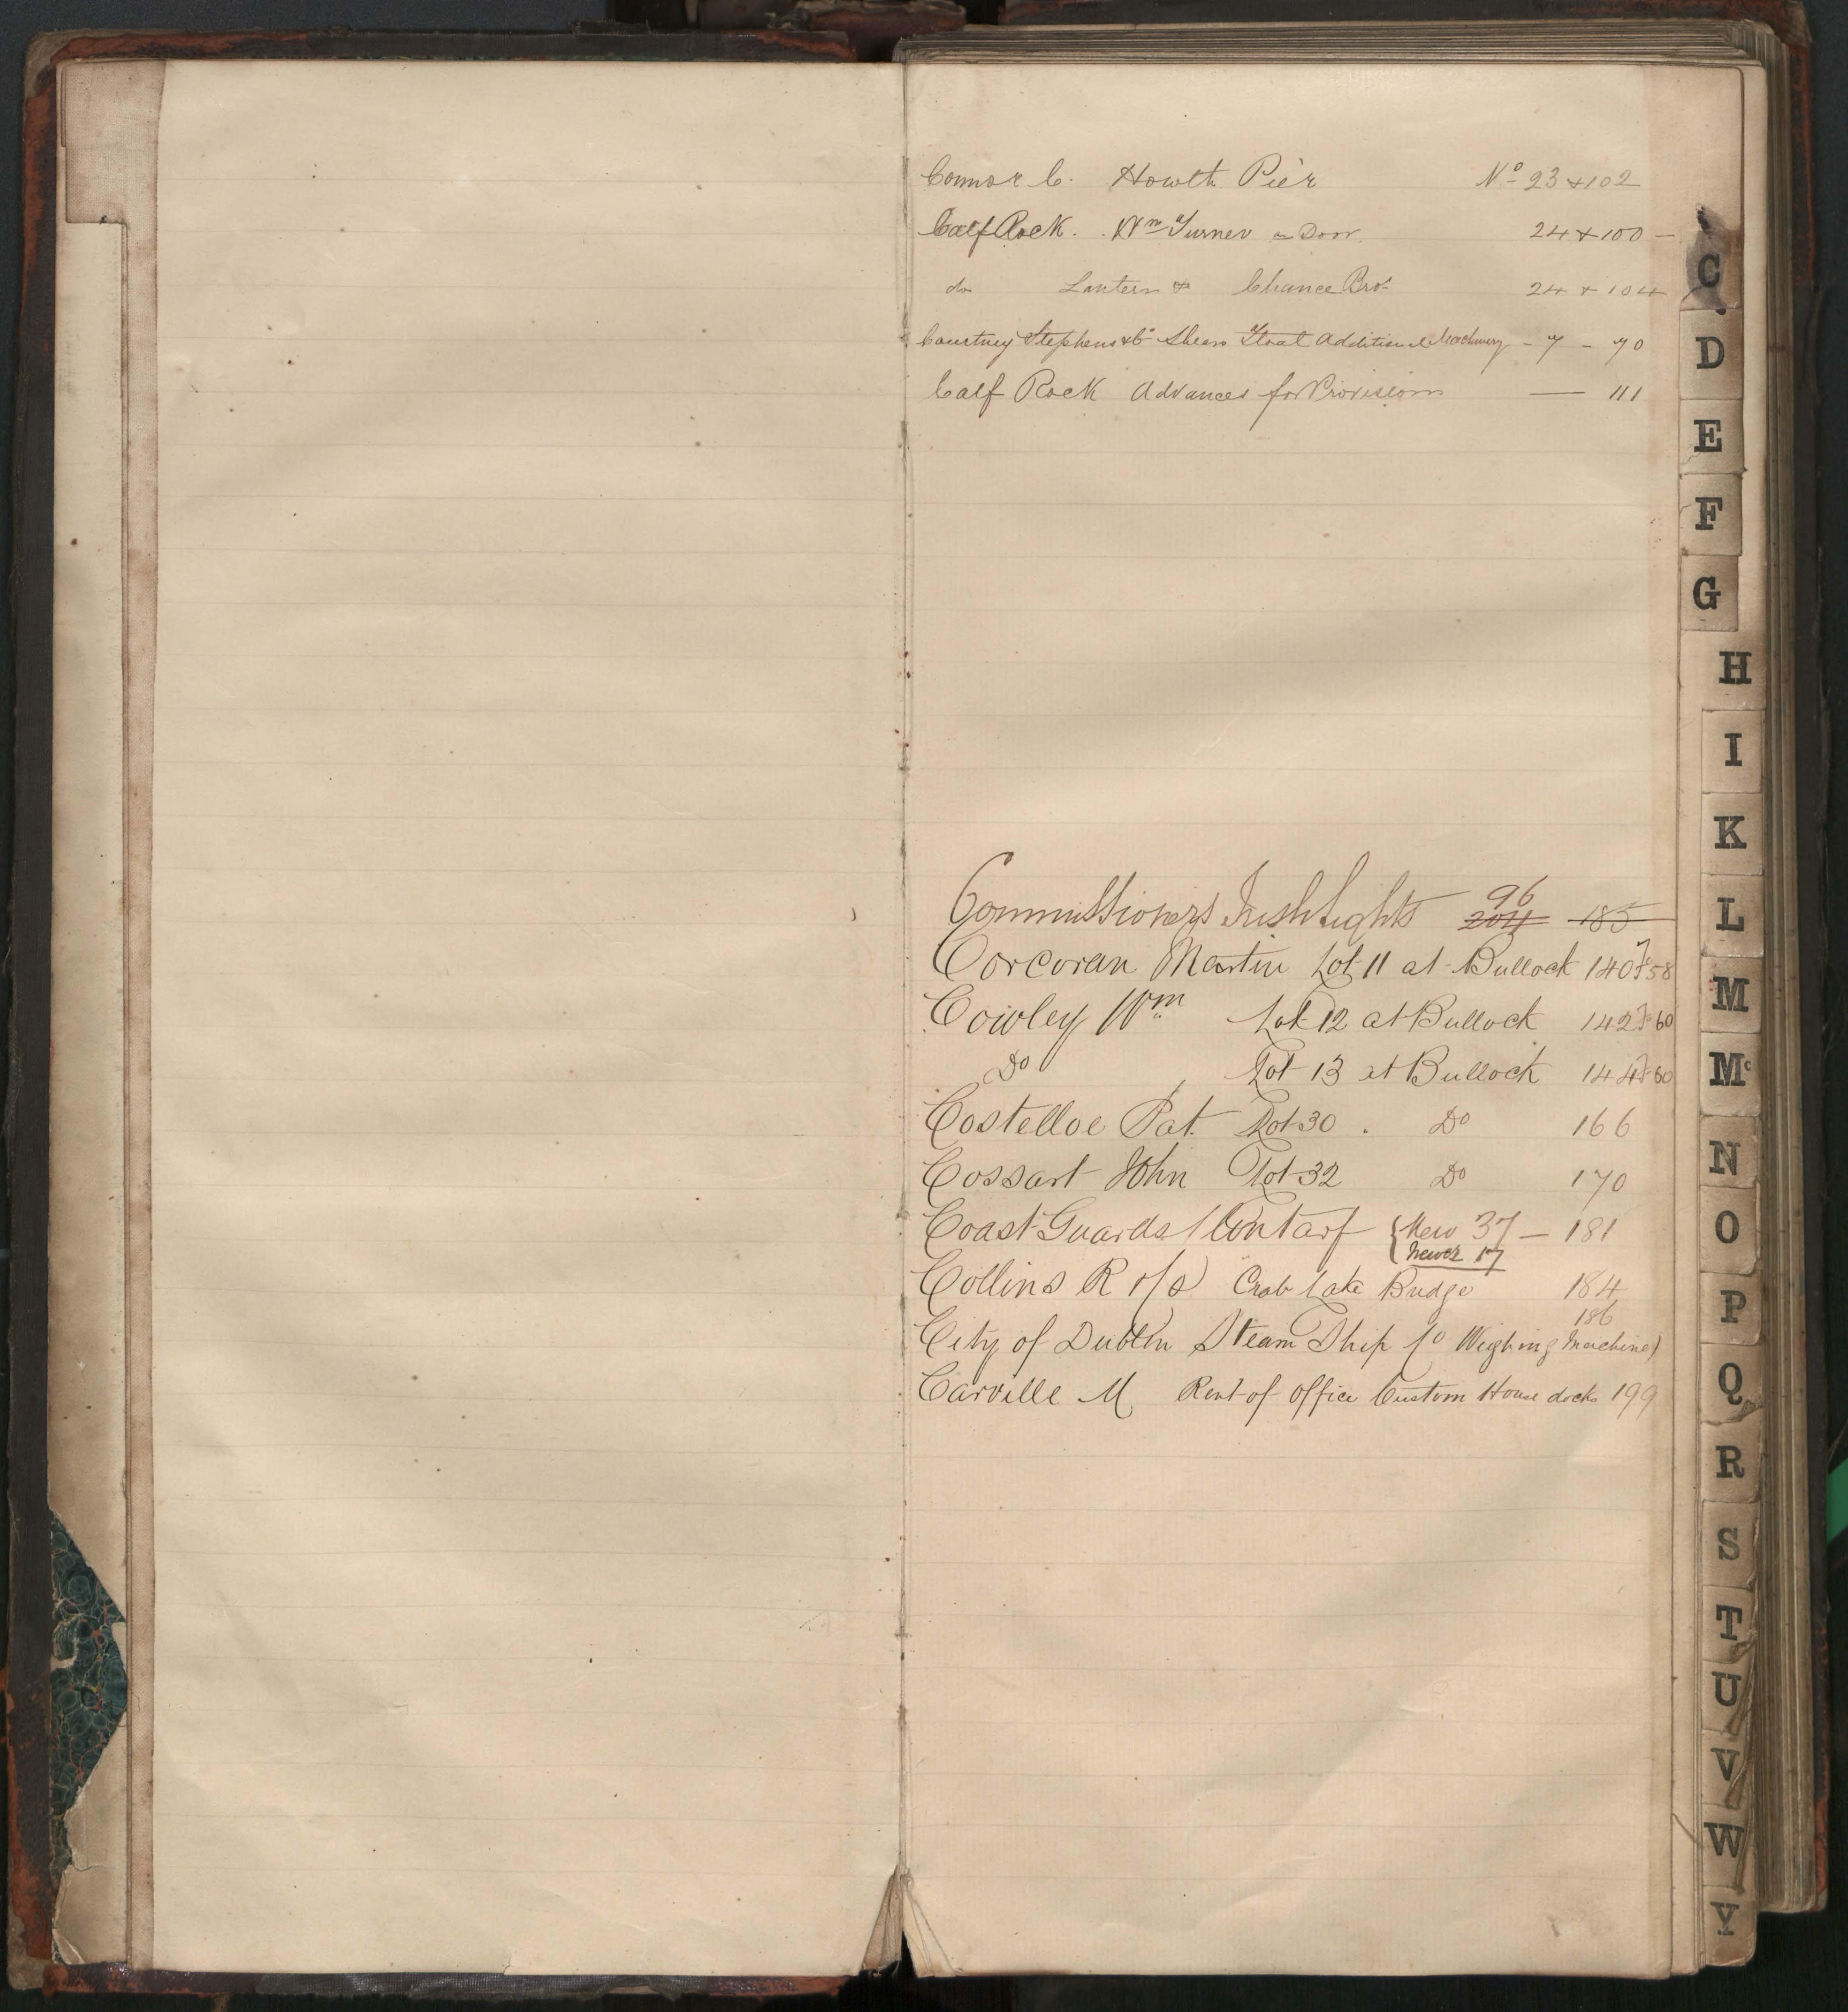 Connor C. Howth Pier No 23 & 102
Calf Rock. Wm Turner Door 24 & 100 —
do Lantern & Chance Bros 24 & 104
Courtney Stephens & Co Shears Float Additional Machinery - 7 - 70
Calf Rock Advances for Provisions — 111
Commissioners Irish Lights 96 204 185
Corcoran Martin Lot 11 at Bullock 140 & 58
Cowley Wm Lot 12 at Bullock 142 & 60
Do Lot 13 at Bullock 144 & 60
Costelloe Pat. Lot 30 . Do 166
Cossart John Lot 32 Do 170
Coast Guards Clontarf { New 37 — 181
Newer 17
Collins R Crab Lake Bridge 184
186
City of Dublin Steam Ship Co Weighing Machines
Carville M Rent of office Custom House docks 199
C
D
E
F
G
H
I
K
L
M
Mc
N
O
P
Q
R
S
T
U
V
W
Y